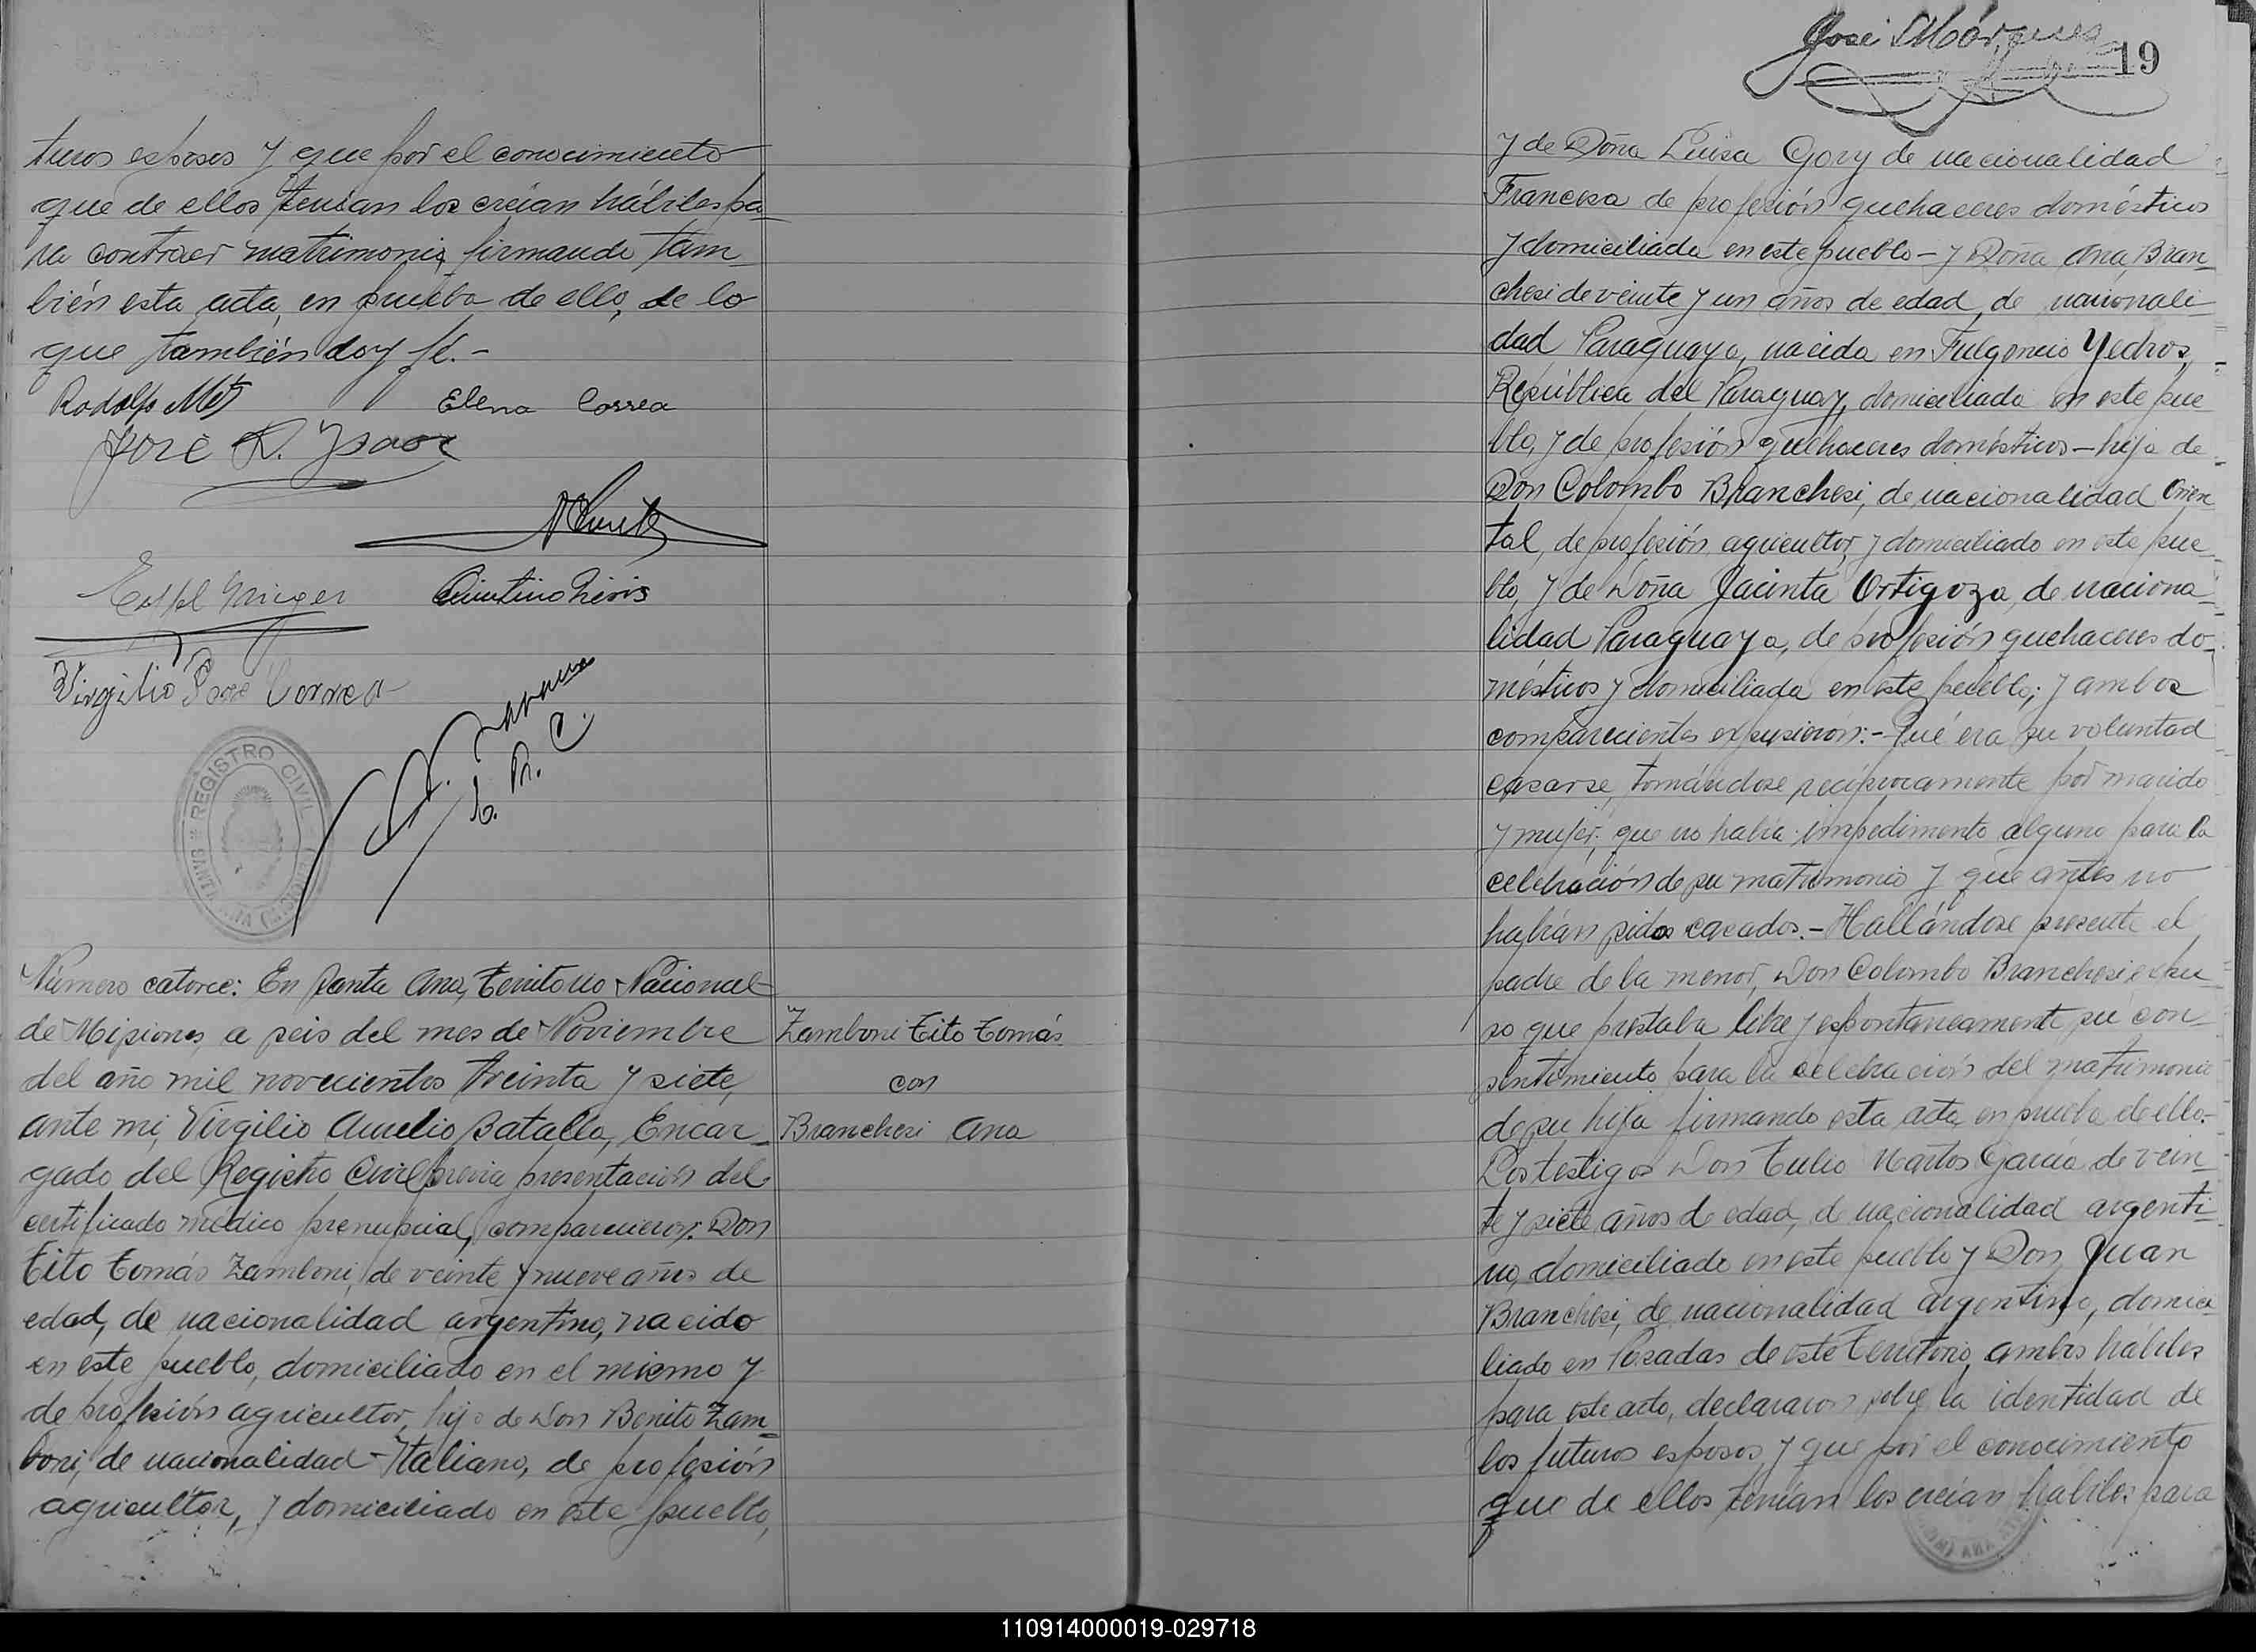 turos esposos y que por el conocimiento
que de ellos tenian los creian hábiles pa
ra contraer matrimonio, firmando tam
bién esta acta, en prueba de ello, de lo
que también doy fé.-
Rodolfo Elena Correa
José R.
Virgilio José Correa
E. R. C.
REGISTRO CIVIL
Número catorce: En Santa Ana, Territorio Nacional
de Misiones, a seis del mes de Noviembre
del año mil novecientos treinta y siete,
ante mi, Virgilio Aurelio Batalla, Encar
gado del Registro Civil previa presentación del
certificado médico prenupcial, comparecieron: Don
Tito Tomás Zamboni, de veinte y nueve años de
edad, de nacionalidad argentino, nacido
en este pueblo, domiciliado en el mismo y
de profesión agricultor, hijo de Don Benito Zam
boni, de nacionalidad Italiano, de profesión
agricultor, y domiciliado en este pueblo,
Zamboni Tito Tomás
con
Branchesi Ana
José Márques
19
y de Doña Luisa Gory de nacionalidad
Francesa de profesión quehaceres domésticos
y domiciliada en este pueblo - y Doña Ana Bran
chesi de veinte y un años de edad, de nacionali
dad Paraguaya, nacida en Fulgencio Yedros,
República del Paraguay, domiciliada en este pue
blo, y de profesión quehaceres domésticos - hija de
Don Colombo Branchesi, de nacionalidad Orien
tal, de profesión agricultor, y domiciliado en este pue
blo, y de Doña Jacinta Ortigoza, de naciona
lidad Paraguaya, de profesión quehaceres do
mésticos y domiciliada en este pueblo; y ambos
comparecientes expusieron:- Qué era su voluntad
casarse, tomándose recíprocamente por marido
y mujer; que no había impedimento alguno para la
celebración de su matrimonio y que antes no
habían sidos casados.- Hallándose presente el
padre de la menor, Don Colombo Branchesi expu
so que prestaba libre y espontaneamente su con
sentimiento para la celebración del matrimonio
de su hija firmando esta acta en prueba de ello.-
Los testigos Don Tulio Martos García de vein
te y siete años de edad, de nacionalidad argenti
no, domiciliado en este pueblo y Don Juan
Branchesi, de nacionalidad argentino, domici
liado en Posadas de este Territorio, ambos hábiles
para este acto, declararon sobre la identidad de
los futuros esposos y que por el conocimiento
que de ellos tenían los creían hábiles para
110914000019-029718